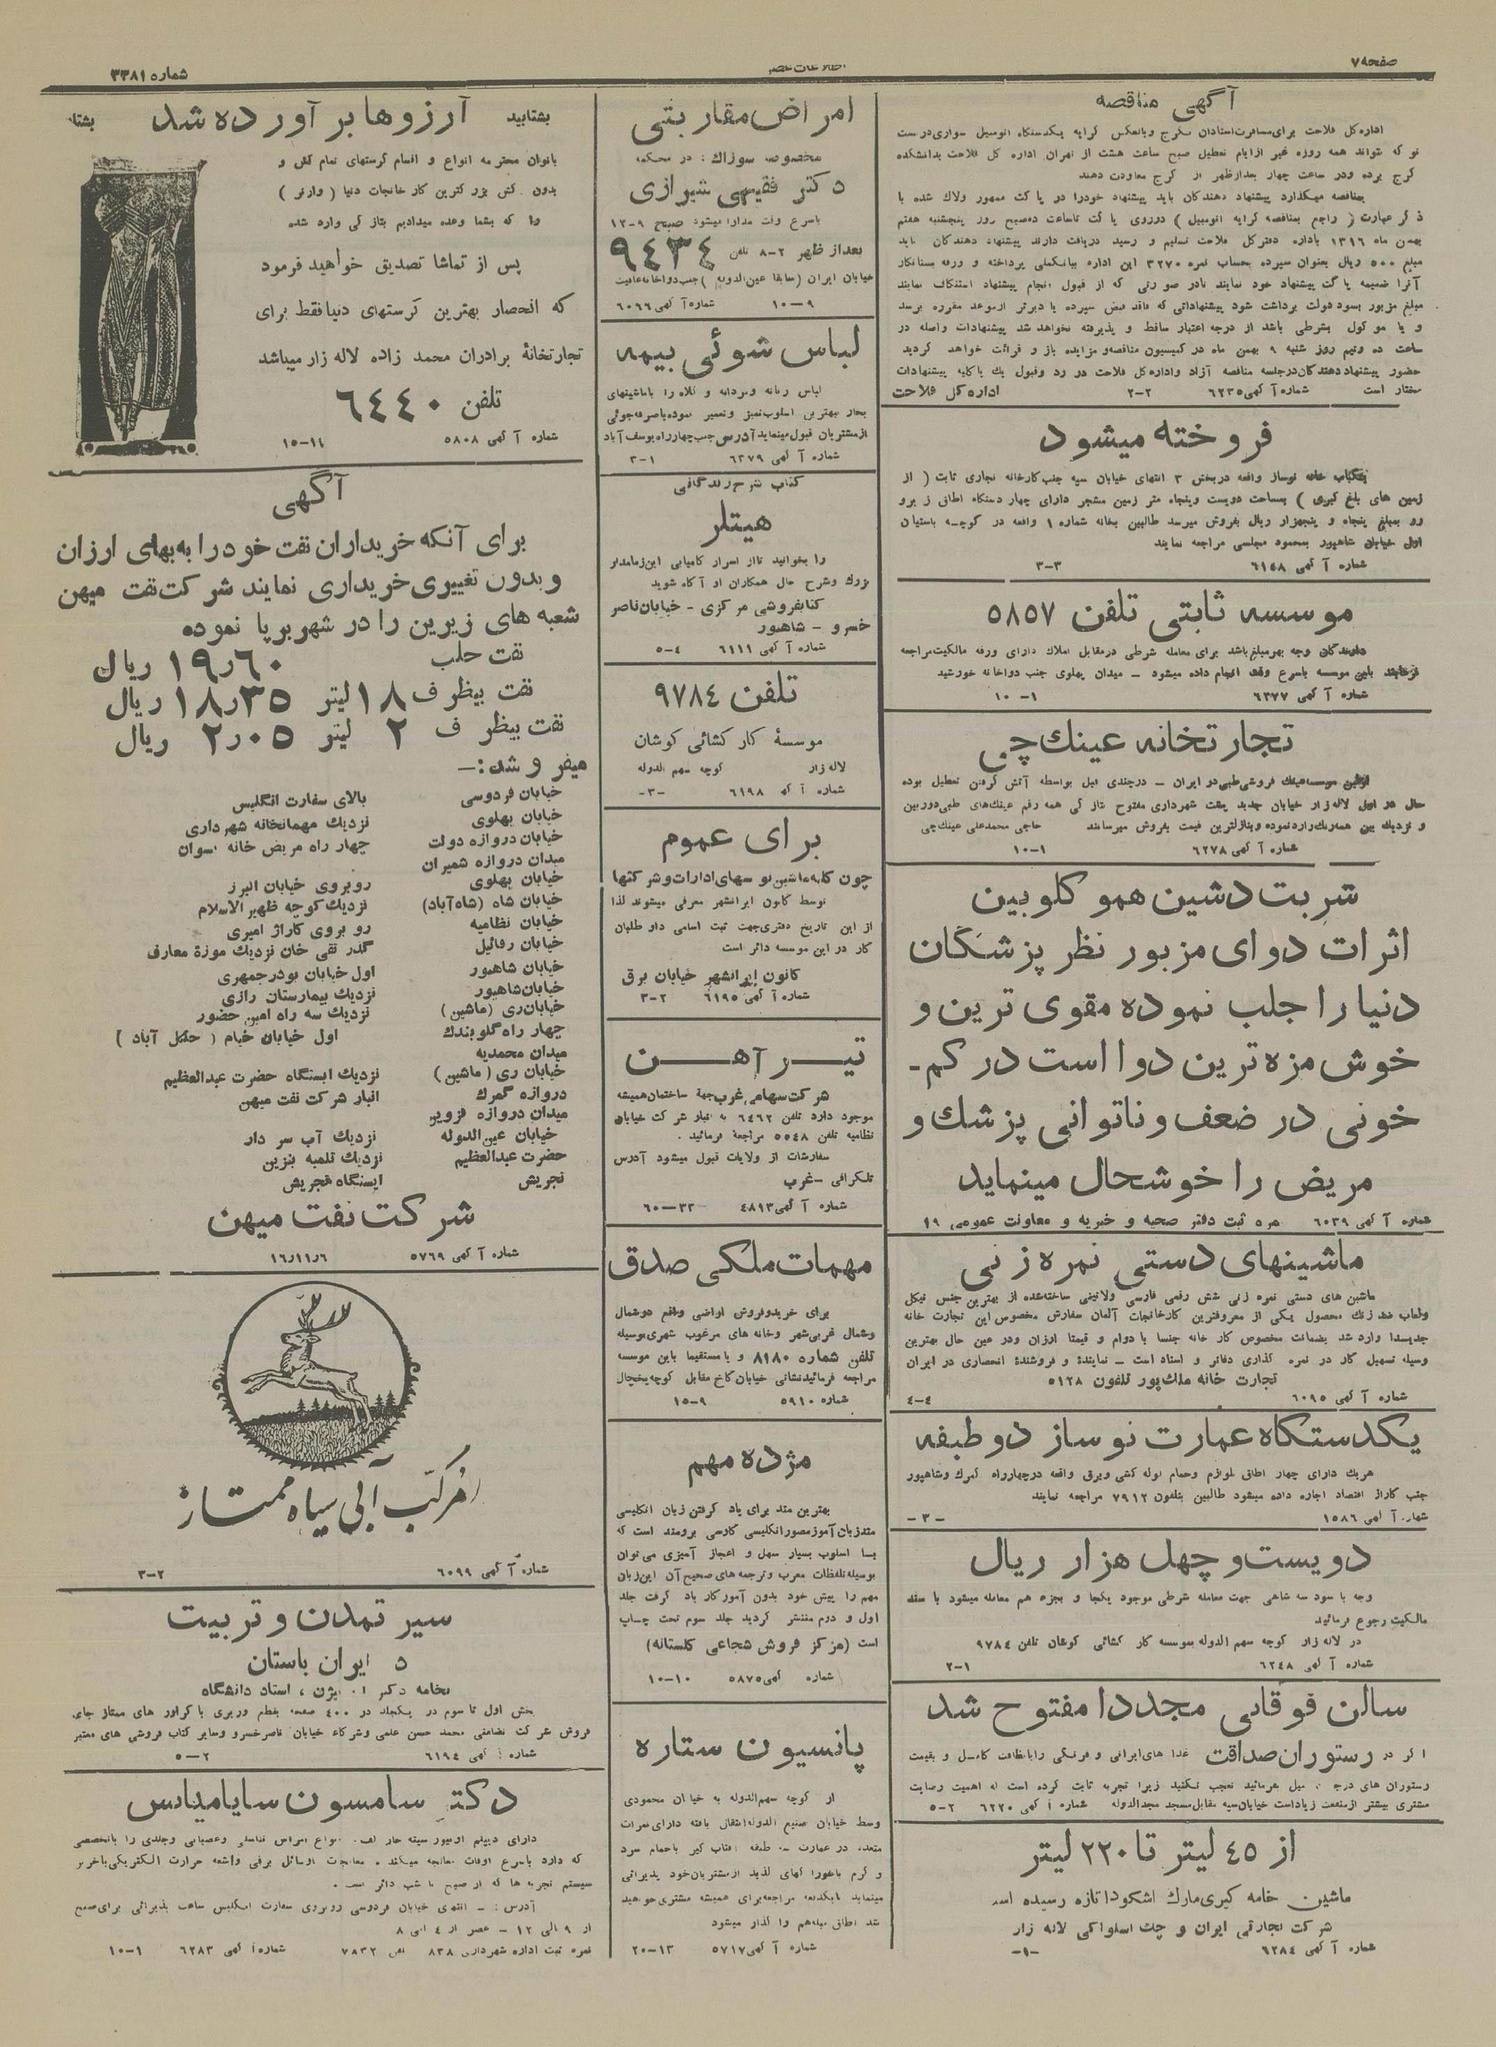 صفحه ۷
اطلاعات عصر
شماره ۳۳۸۱
آگهی مناقصه
اداره کل فلاحت برای مسافرت استادان بکرج و بالعکس کرایه یکدستگاه اتومبیل سواری درست
نو که بتواند همه روزه غیر از ایام تعطیل صبح ساعت هشت از تهران اداره کل فلاحت بدانشکده
کرج برده ودر ساعت چهار بعدازظهر از کرج معاودت دهند
بمناقصه میگذارد پیشنهاد دهندگان باید پیشنهاد خودرا دو پاکت ممهور ولاك شده با
ذکر عبارت ( راجع بمناقصه کرایه اتومبیل ) درروی پاکت تاساعت ده صبح روز پنجشنبه هفتم
بهمن ماه ۱۳۱۶ باداره دفتر کل فلاحت تسلیم و رسید دریافت دارند پیشنهاد دهندگان باید
مبلغ ۵۰۰ ریال بعنوان سپرده بحساب نمره ۳۲۷۰ این اداره ببانکملی پرداخته و ورقه بستانکار
آنرا ضمیمه پاکت پیشنهاد خود نمایند نادر صورتی که از قبول انجام پیشنهاد استنکاف نمایند
مبلغ مزبور بسود دولت برداشت شود پیشنهاداتی که فاقد قبض سپرده یا دیرتر ازموعد مقرره برسد
و یا موکول بشرطی باشد از درجه اعتبار ساقط و پذیرفته نخواهد شد پیشنهادات واصله در
ساعت ده ونیم روز شنبه ۹ بهمن ماه در کمیسیون مناقصه و مزایده باز و قرائت خواهد گردید
حضور پیشنهاد دهندگان درجلسه مناقصه آزاد واداره کل فلاحت در رد وقبول یك یا کلیه پیشنهادات
مختار است شماره آگهی ۶۲۳۵ ۲-۲ اداره کل فلاحت
فروخته میشود
یکباب خانه نوساز واقعه دربخش ۳ انتهای خیابان سپه جنب کارخانه نجاری ثابت ( از
زمین های بلغ کبری ) بمساحت دویست وپنجاه متر زمین مشجر دارای چهار دستگاه اطاق زیرو
رو بمبلغ پنجاه و پنجهزار ریال بفروش میرسد طالبین بخانه شماره ۱ واقعه در کوچه باستیان
اول خیابان شاهپور بمحمود مجلسی مراجعه نمایند
شماره آگهی ۶۱۴۸ ۳-۳
موسسه ثابتی تلفن ۵۸۵۷
دارندگان وجه بهرمبلغ باشد برای معامله شرطی درمقابل املاك دارای ورقه مالکیت مراجعه
فرمایند باین موسسه باسرع وقت انجام داده میشود - میدان پهلوی جنب دواخانه خورشید
شماره آگهی ۶۲۷۷ ۱-۱۰
تجارتخانه عینك چی
اولین موسسه عینك فروشی طبی در ایران - درچندی قبل بواسطه آتش گرفتن تعطیل بوده
حال در اول لاله زار خیابان جدید پشت شهرداری مفتوح بتازگی همه رقم عینك های طبی دوربین
و نزدیك بین همه رنك وارد نموده وبنازلترین قیمت بفروش میرساند حاجی محمدعلی عینك چی
شماره آگهی ۶۲۷۸ ۱-۱۰
شربت دشین هموگلوبین
اثرات دوای مزبور نظر پزشکان
دنیا را جلب نموده مقوی ترین و
خوش مزه ترین دوا است در کم-
خونی در ضعف و ناتوانی پزشك و
مریض را خوشحال مینماید
شماره آگهی ۶۰۳۹ نمره ثبت دفتر صحیه و خیریه و معاونت عمومی ۱۹
ماشینهای دستی نمره زنی
ماشین های دستی نمره زنی شش رقمی فارسی ولاتینی ساخته شده از بهترین جنس نیکل
ولعاب ضد زنك محصول یکی از معروفترین کارخانجات آلمان سفارش مخصوص این تجارت خانه
جدیدا وارد شد بضمانت مخصوص کار خانه جنسا با دوام و قیمتا ارزان ودر عین حال بهترین
وسیله تسهیل کار در نمره گذاری دفاتر و اسناد است - نماینده و فروشنده انحصاری در ایران
تجارت خانه ملك پور تلفون ۵۱۲۸
شماره آگهی ۶۰۹۵ ۴-۴
یکدستگاه عمارت نوساز دو طبقه
هریك دارای چهار اطاق لوازم وحمام لوله کشی وبرق واقعه درچهارراه گمرك وشاهپور
جنب گاراژ اقتصاد اجاره داده میشود طالبین بتلفون ۷۹۱۲ مراجعه نمایند
شماره آگهی ۱۵۸۶ -۳-
دویست و چهل هزار ریال
وجه با سود سه شاهی جهت معامله شرطی موجود یکجا و بجزء هم معامله میشود با سند
مالکیت رجوع فرمائید
در لاله زار کوچه سهم الدوله بموسسه کار گشائی کوشان تلفن ۹۷۸۴
شماره آگهی ۶۲۴۸ ۱-۲
سالن فوقانی مجددا مفتوح شد
اگر در رستوران صداقت غذا های ایرانی و فرنگی رابانظافت کامل و بقیمت
رستوران های درجه میل فرمائید تعجب نکنید زیرا تجربه ثابت کرده است که اهمیت رضایت
مشتری بیشتر ازمنفعت زیاداست خیابان سپه مقابل مسجد مجدالدوله شماره آگهی ۶۲۲۰ ۲-۵
از ۴۵ لیتر تا ۲۲۰ لیتر
ماشین خامه گیری مارك اشکودا تازه رسیده است
شرکت تجارتی ایران و چك اسلواکی لاله زار
شماره آگهی ۶۲۸۴ -۱-
امراض مقاربتی
مخصوصا سوزاك : در محکمه
دکتر فقیهی شیرازی
باسرع وقت مداوا میشود صبح ۹-۱۲
بعداز ظهر ۲-۸ تلفن ۹۴۳۴
خیابان ایران (سابقا عین الدوله) جنب دواخانه عافیت
شماره آگهی ۶۰۹۶ ۹-۱۰
لباس شوئی بیمه
لباس زنانه ومردانه و کلاه را باماشینهای
بخار بهترین اسلوب تمیز وتعمیر نموده باصرفه جوئی
ازمشتریان قبول مینماید آدرس جنب چهارراه یوسف آباد
شماره آگهی ۶۲۷۹ ۱-۳
کتاب شرح زندگانی
هیتلر
را بخوانید تااز اسرار کامیابی این زمامدار
بزرك وشرح حال همکاران او آگاه شوید
کتابفروشی مرکزی - خیابان ناصر
خسرو - شاهپور
شماره آگهی ۶۱۱۱ ۴-۵
تلفن ۹۷۸۴
موسسۀ کارگشائی کوشان
لاله زار کوچه سهم الدوله
شماره آگهی ۶۱۹۸ -۳-
برای عموم
چون کلیه ماشین نویسهای ادارات و شرکتها
توسط کانون ایرانشهر معرفی میشوند لذا
از این تاریخ دفتری جهت ثبت اسامی داوطلبان
کار در این موسسه دائر است
کانون ایرانشهر خیابان برق
شماره آگهی ۶۱۹۵ ۲-۳
تیرآهن
شرکت سهامی غرب جهة ساختمان همیشه
موجود دارد تلفن ۶۴۶۲ به انبار شرکت خیابان
نظامیه تلفن ۵۵۴۸ مراجعه فرمائید .
سفارشات از ولایات قبول میشود آدرس
تلگرافی - غرب
شماره آگهی ۴۸۱۳ ۳۲-۶۰
مهمات ملکی صدق
برای خریدوفروش اراضی واقع دوشمال
وشمال غربی شهر وخانه های مرغوب شهری بوسیله
تلفن شماره ۸۱۸۰ و یا مستقیما باین موسسه
مراجعه فرمائید نشانی خیابان کاخ مقابل کوچه یخچال
شماره ۵۹۱۰ ۹-۱۵
مژده مهم
بهترین متد برای یاد گرفتن زبان انگلیسی
متد زبان آموز مصور انگلیسی گارسی برومند است که
با اسلوب بسیار سهل و اعجاز آمیزی می توان
بوسیله تلفظات معرب و ترجمه های صحیح آن این زبان
مهم را پیش خود بدون آموزگار یاد گرفت جلد
اول و دوم منتشر گردید جلد سوم تحت چاپ
است (مرکز فروش شجاعی گلستانه)
شماره آگهی ۵۸۷۵ ۱۰-۱۰
پانسیون ستاره
از کوچه سهم الدوله به خیابان محمودی
وسط خیابان صنیع الدوله انتقال یافته دارای نمرات
متعدد در عمارت طبقه آفتاب گیر باحمام سرد
و گرم باخوراکهای لذیذ ازمشتریان خود پذیرائی
مینماید بایکدفعه مراجعه برای همیشه مشتری خواهید
شد اطاق مبله هم واگذار میشود
شماره آگهی ۵۷۱۷ ۱۳-۲۰
بشتابید آرزوها برآورده شد بشتابید
بانوان محترمه انواع و اقسام کرستهای تمام کش و
بدون کش بزرگترین کارخانجات دنیا ( وارنر )
را که بشما وعده میدادیم بتازگی وارد شده
پس از تماشا تصدیق خواهید فرمود
که انحصار بهترین کرستهای دنیا فقط برای
تجارتخانۀ برادران محمد زاده لاله زار میباشد
تلفن ۶۴۴۰
شماره آگهی ۵۸۰۸ ۱۱-۱۵
آگهی
برای آنکه خریداران نفت خود را به بهای ارزان
وبدون تغییری خریداری نمایند شرکت نفت میهن
شعبه های زیرین را در شهر برپا نموده
نفت حلب ۱۹٫۶۰ ریال
نفت بیظرف ۱۸ لیتر ۱۸٫۳۵ ریال
نفت بیظرف ۲ لیتر ۲٫۰۵ ریال
میفروشد :-
خیابان فردوسی بالای سفارت انگلیس
خیابان پهلوی نزدیك مهمانخانه شهرداری
خیابان دروازه دولت چهار راه مریض خانه نسوان
میدان دروازه شمیران
خیابان پهلوی روبروی خیابان البرز
خیابان شاه (شاه آباد) نزدیك کوچه ظهیرالاسلام
خیابان نظامیه روبروی گاراژ امیری
خیابان رفائیل گذر تقی خان نزدیك موزه معارف
خیابان شاهپور اول خیابان بوذرجمهری
خیابان شاهپور نزدیك بیمارستان رازی
خیابان ری (ماشین) نزدیك سه راه امین حضور
چهار راه گلوبندك اول خیابان خیام ( جلیل آباد )
میدان محمدیه
خیابان ری (ماشین) نزدیك ایستگاه حضرت عبدالعظیم
دروازه گمرك انبار شرکت نفت میهن
میدان دروازه قزوین
خیابان عین الدوله نزدیك آب سردار
حضرت عبدالعظیم نزدیك تلمبه بنزین
تجریش ایستگاه تجریش
شرکت نفت میهن
شماره آگهی ۵۷۶۹ ۱۶٫۱۱٫۶
مرکب آبی سیاه ممتاز
شماره آگهی ۶۰۹۹ ۲-۳
سیر تمدن و تربیت
در ایران باستان
بخامه دکتر بیژن ، استاد دانشگاه
بخش اول تا سوم در یکجلد در ۴۰۰ صفحه بقطع وزیری با گراور های ممتاز جای
فروش شرکت تضامنی محمد حسن علمی وشرکاء خیابان ناصرخسرو وسایر کتاب فروشی های معتبر
شماره آگهی ۶۱۹۴ ۲-۵
دکتر سامسون سایامیانس
دارای دیپلم انواع امراض تناسلی وعصبانی وجلدی را باتخصصی
که دارد باسرع اوقات معالجه میکند . معالجات بوسائل برقی واشعه حرارت الکتریکی باخرین
سیستم تجزیه ها که از صبح تا شب دائر است .
آدرس : - انتهای خیابان فردوسی روبروی سفارت انگلیس ساعت پذیرائی برای صبح
از ۹ الی ۱۲ - عصر از ۴ الی ۸
نمره ثبت اداره شهرداری ۸۳۸ تلفن ۷۸۳۲ شماره آگهی ۶۲۸۳ ۱-۱۰